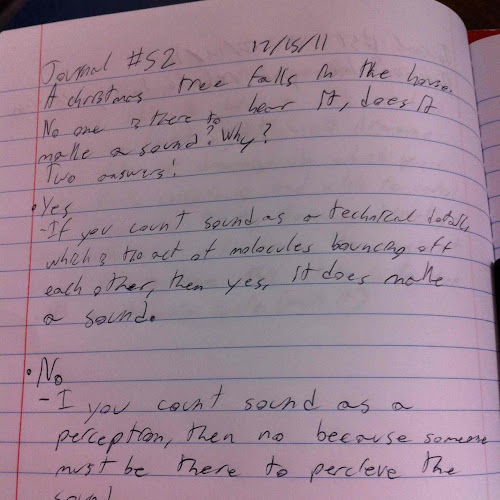 Journal #52 12/15/11
A christmas tree falls in the house.
No one is there to hear it, does it
make a sound? Why?
Two answers!
• Yes
- If you count sound as a technical details,
which is the act of molecules bouncing off
each other, then yes, it does make
a sound.
• No
- I you count sound as a
perception, then no because someone
must be there to percieve the
sound